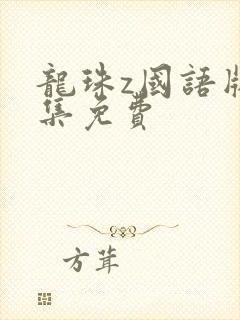 龍珠z國語版
集免費
方茸